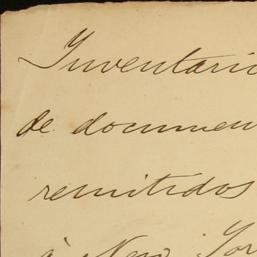 Inventario
de documen
remitidos
à New Yor